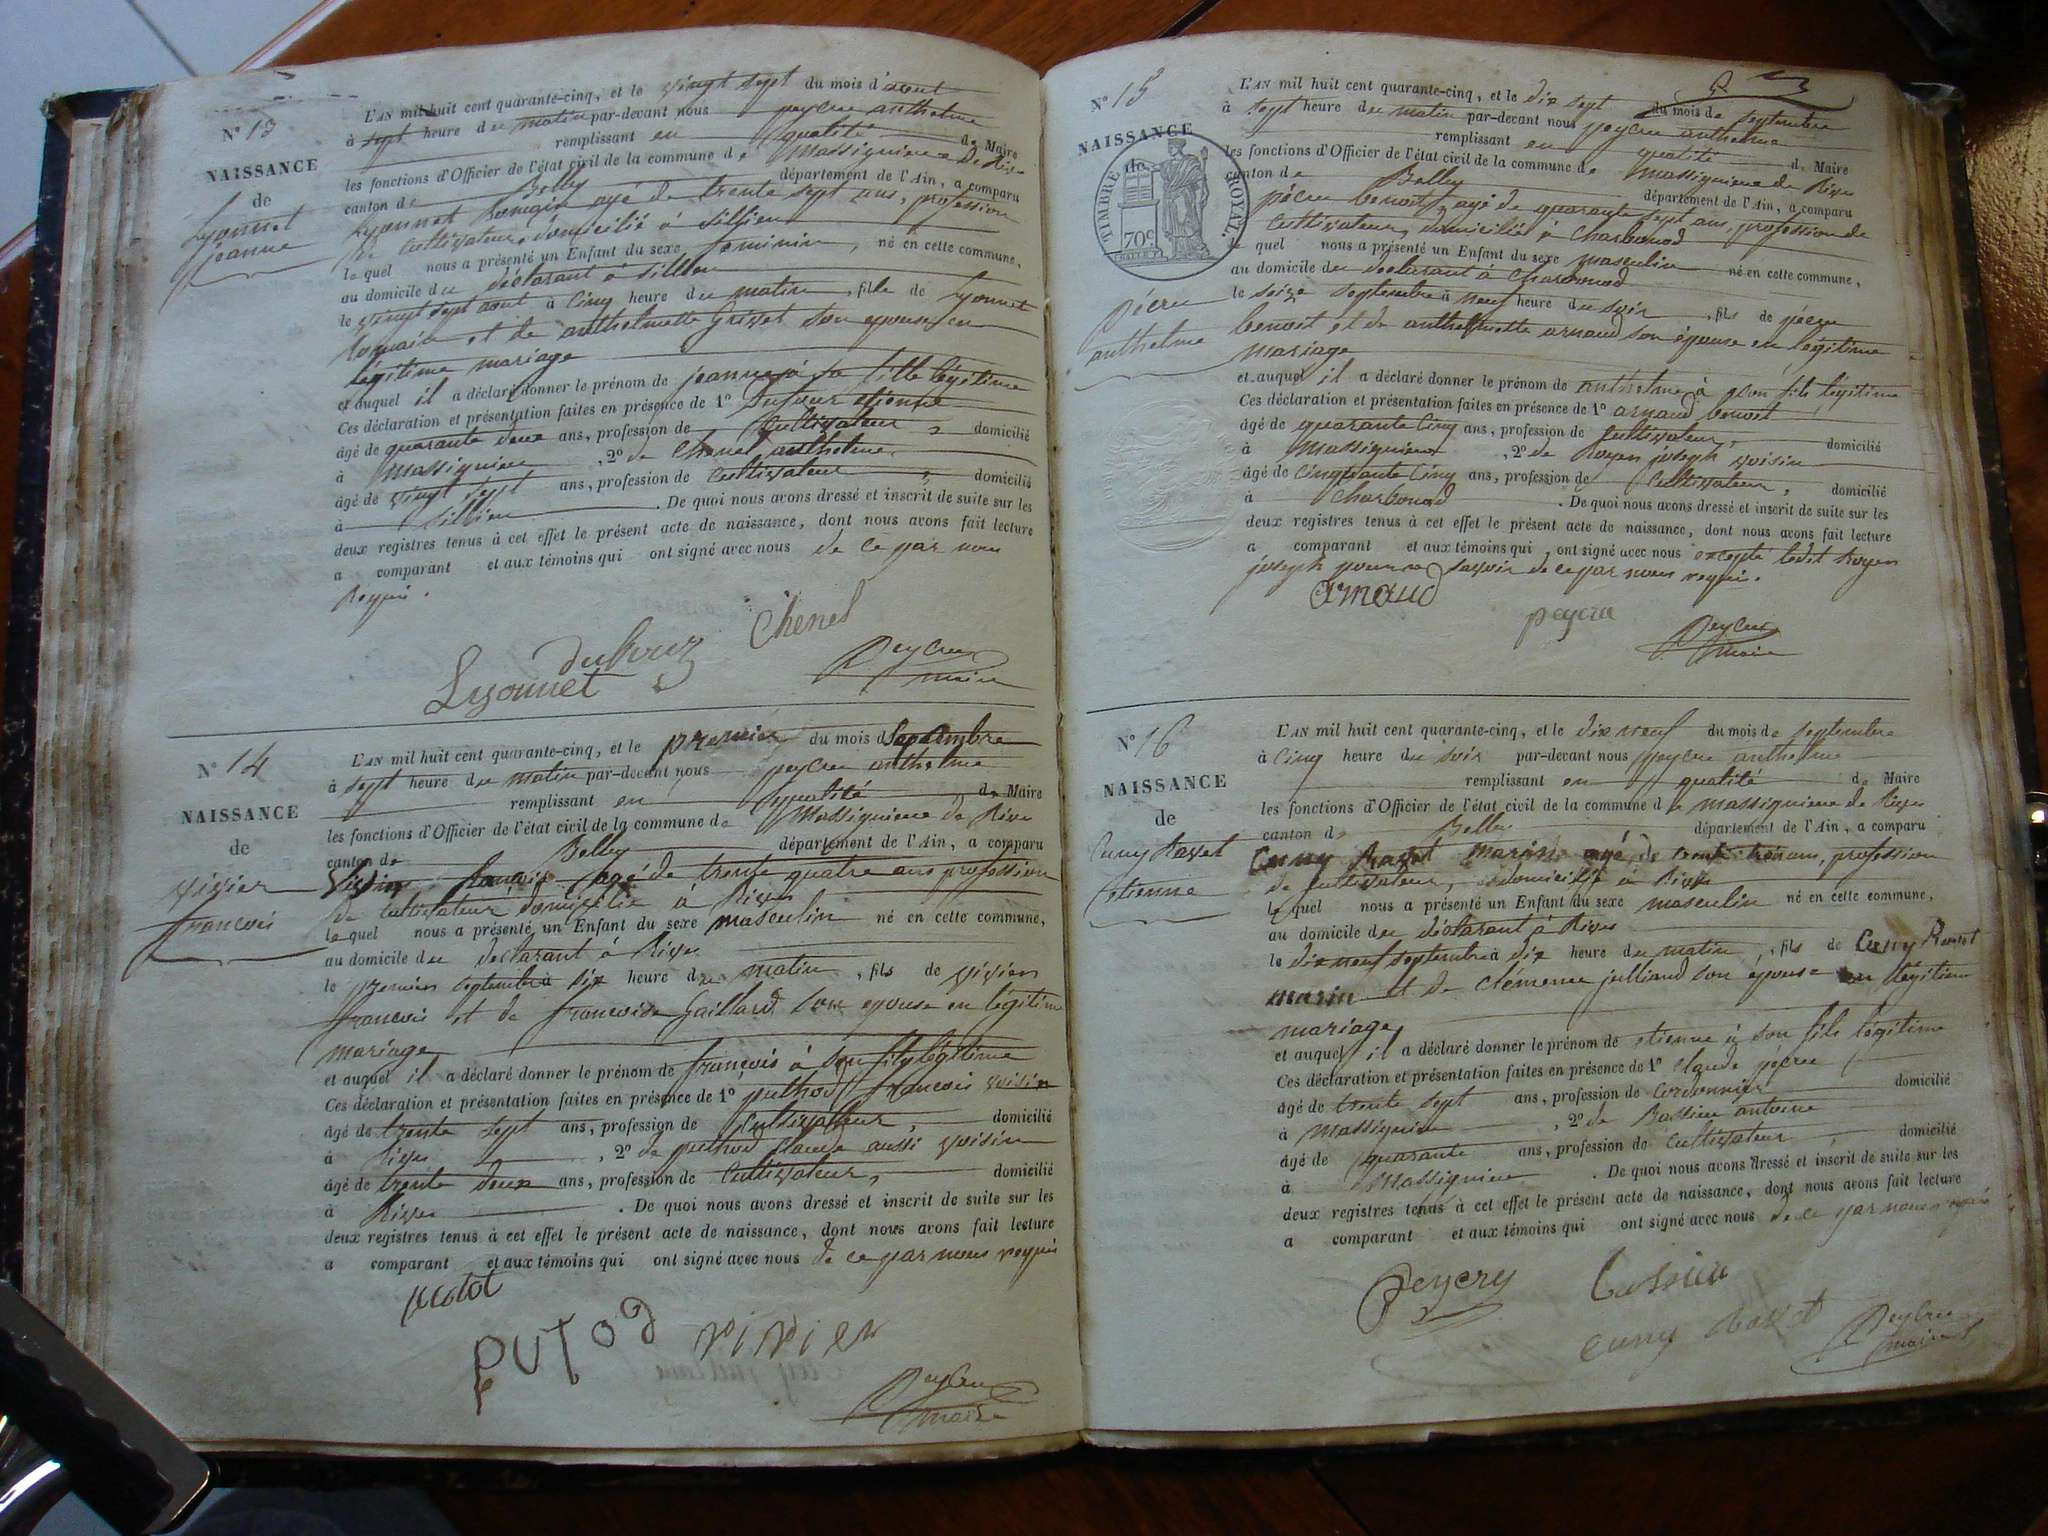 N° 13
NAISSANCE
de
Lyonnet
jeanne
L'AN mil huit cent quarante-cinq, et le vingt sept du mois d'aout
à sept heure du matin par-devant nous peycru anthelme
remplissant en qualité de Maire
les fonctions d'Officier de l'état civil de la commune de Massignieu de Rives
canton de Belley département de l'Ain, a comparu
Lyonnet âgé de trente sept ans, profession
de Cultivateur, domicilié à sillien
le quel nous a présenté un Enfant du sexe feminin, né en cette commune,
au domicile du declarant à sillien
le vingt sept aout à Cinq heure du matin, fille de Lyonnet
Romain et de anthelmette Grisset son epouse en
légitime mariage
et auquel il a déclaré donner le prénom de jeanne à sa fille légitime
Ces déclaration et présentation faites en présence de 1° etienne
âgé de quarante deux ans, profession de Cultivateur, domicilié
à Massignieu, 2° de Chenel anthelme
âgé de vingt sept ans, profession de Cultivateur, domicilié
à sillien. De quoi nous avons dressé et inscrit de suite sur les
deux registres tenus à cet effet le présent acte de naissance, dont nous avons fait lecture
a comparant et aux témoins qui ont signé avec nous de ce par nous
Requis.
Chenel
Lyonnet
Peycru
maire
N° 14
NAISSANCE
de
vivier
francois
L'AN mil huit cent quarante-cinq, et le premier du mois de Septembre
à sept heure du matin par-devant nous peycru anthelme
remplissant en qualité de Maire
les fonctions d'Officier de l'état civil de la commune de Massignieu de Rives
canton de Belley département de l'Ain, a comparu
Vivier francois agé de trente quatre ans profession
de Cultivateur domicilié à Rives
le quel nous a présenté un Enfant du sexe masculin né en cette commune,
au domicile du declarant à Rives
le premier septembre à six heure du matin, fils de vivier
francois et de francoise Gaillard son epouse en légitime
mariage
et auquel il a déclaré donner le prénom de françois à son fils légitime
Ces déclaration et présentation faites en présence de 1° puthod francois voisin
âgé de trente sept ans, profession de Cultivateur, domicilié
à Rives, 2° de puthod Claude aussi voisin
âgé de trente deux ans, profession de Cultivateur, domicilié
à Rives. De quoi nous avons dressé et inscrit de suite sur les
deux registres tenus à cet effet le présent acte de naissance, dont nous avons fait lecture
a comparant et aux témoins qui ont signé avec nous de ce par nous requis
putod vivier
Peycru
maire
N° 15
NAISSANCE
de
TIMBRE ROYAL
70c
pécru
anthelme
L'AN mil huit cent quarante-cinq, et le dix sept du mois de septembre
à sept heure du matin par-devant nous peycru anthelme
remplissant en qualité de Maire
les fonctions d'Officier de l'état civil de la commune de Massignieu de Rives
canton de Belley département de l'Ain, a comparu
pécru benoit, agé de quarante sept ans, profession de
Cultivateur, domicilié à Charbonod
le quel nous a présenté un Enfant du sexe masculin né en cette commune,
au domicile du declarant à Charbonod
le seize septembre à neuf heure du soir, fils de pécru
benoit et de anthelmette arnaud son épouse en légitime
mariage
et auquel il a déclaré donner le prénom de anthelme à son fils légitime
Ces déclaration et présentation faites en présence de 1° arnaud benoit
âgé de quarante Cinq ans, profession de Cultivateur, domicilié
à Massignieu, 2° de Royer joseph voisin
âgé de Cinquante Cinq ans, profession de Cultivateur, domicilié
à Charbonod. De quoi nous avons dressé et inscrit de suite sur les
deux registres tenus à cet effet le présent acte de naissance, dont nous avons fait lecture
a comparant et aux témoins qui ont signé avec nous excepté ledit Royer
joseph pour ne savoir de ce par nous requis.
arnaud
Peycru
maire
N° 16
NAISSANCE
de
Cuny Ravet
Etienne
L'AN mil huit cent quarante-cinq, et le dix neuf du mois de septembre
à Cinq heure du soir par-devant nous peycru anthelme
remplissant en qualité de Maire
les fonctions d'Officier de l'état civil de la commune de massignieu de Rives
canton de Belley département de l'Ain, a comparu
Cuny Ravet Marin agé de trente trois ans, profession
de Cultivateur, domicilié à Rives
le quel nous a présenté un Enfant du sexe masculin né en cette commune,
au domicile du déclarant à Rives
le dix neuf septembre à dix heure du matin, fils de Cuny Ravet
marin et de clémence julliand son épouse en légitime
mariage
et auquel il a déclaré donner le prénom de etienne à son fils légitime
Ces déclaration et présentation faites en présence de 1° Claude pécru
âgé de trente sept ans, profession de Cordonnier domicilié
à Massignieu, 2° de Bassieu antoine
âgé de quarante ans, profession de Cultivateur, domicilié
à Massignieu. De quoi nous avons dressé et inscrit de suite sur les
deux registres tenus à cet effet le présent acte de naissance, dont nous avons fait lecture
a comparant et aux témoins qui ont signé avec nous de ce par nous requis
cuny Ravet
Peycru
maire